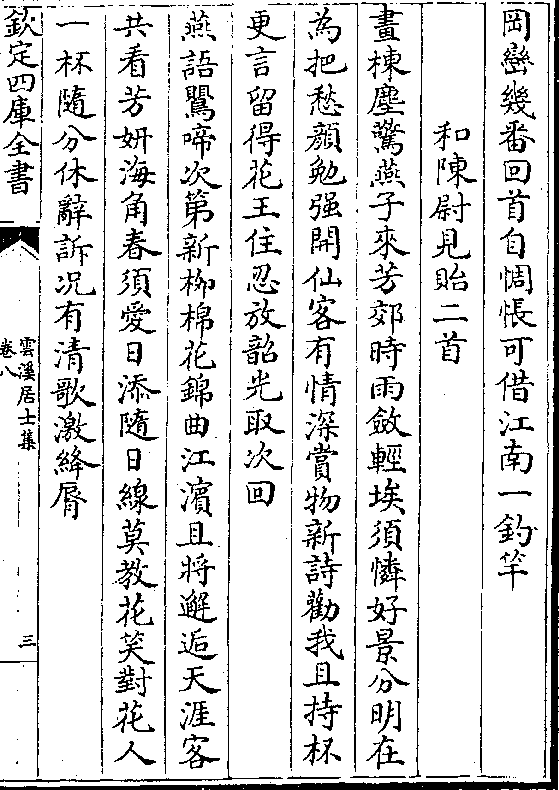 岡巒幾番回首自惆悵可借江南一釣竿
和陳尉見貽二首
畫棟塵驚燕子來芳郊時雨斂輕埃須憐好景分明在
為把愁顔勉强開仙客有情深賞物新詩勸我且持杯
更言留得花王住忍放韶光取次回
燕語鶯啼次第新柳棉花錦曲江濱且將邂逅天涯客
共看芳妍海角春須愛日添隨日線莫教花笑對花人
一杯隨分休辭訴况有清歌激絳脣
欽定四庫全書
雲溪居士集
卷八
三